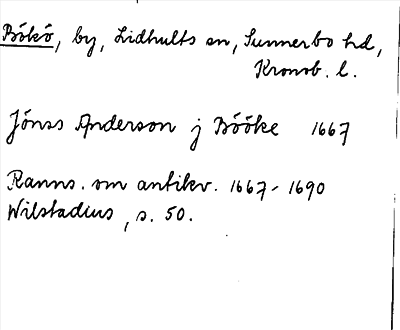 Bökö, by, Lidhults sn, Sunnerbo hd,
Kronob. l.
Jönss Anderson j Bööke 1667
Ranns. om antikv. 1667-1690
Wilstadius, s. 50.